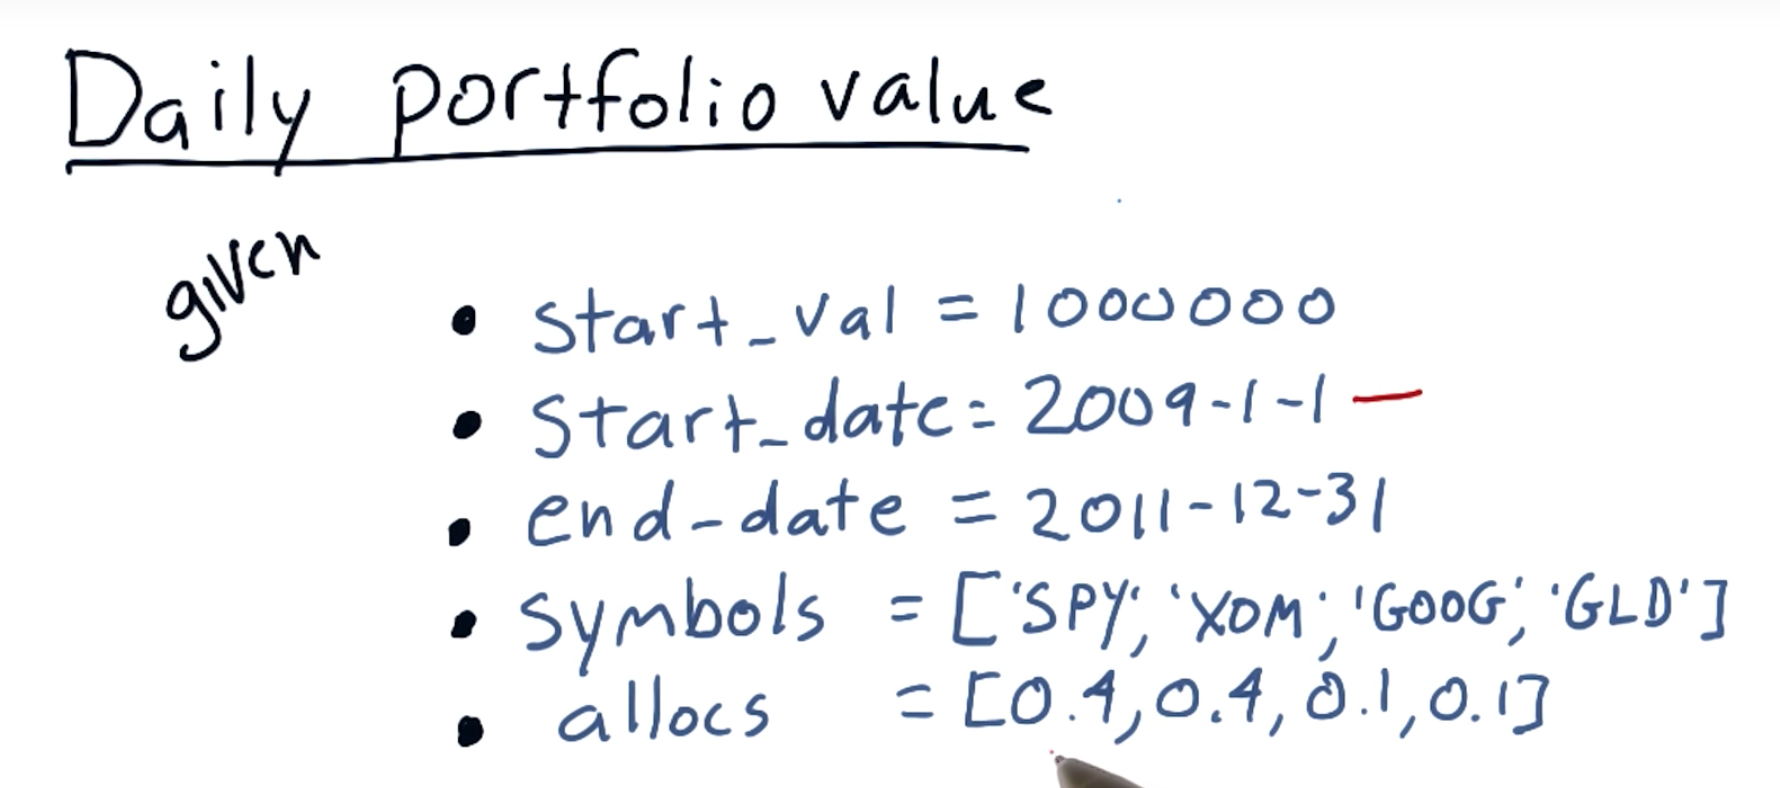 Daily portfolio value
given
• start_val = 1000000
• start_date = 2009-1-1 —
• end-date = 2011-12-31
• symbols = ['SPY', 'XOM', 'GOOG', 'GLD']
• allocs = [0.4, 0.4, 0.1, 0.1]